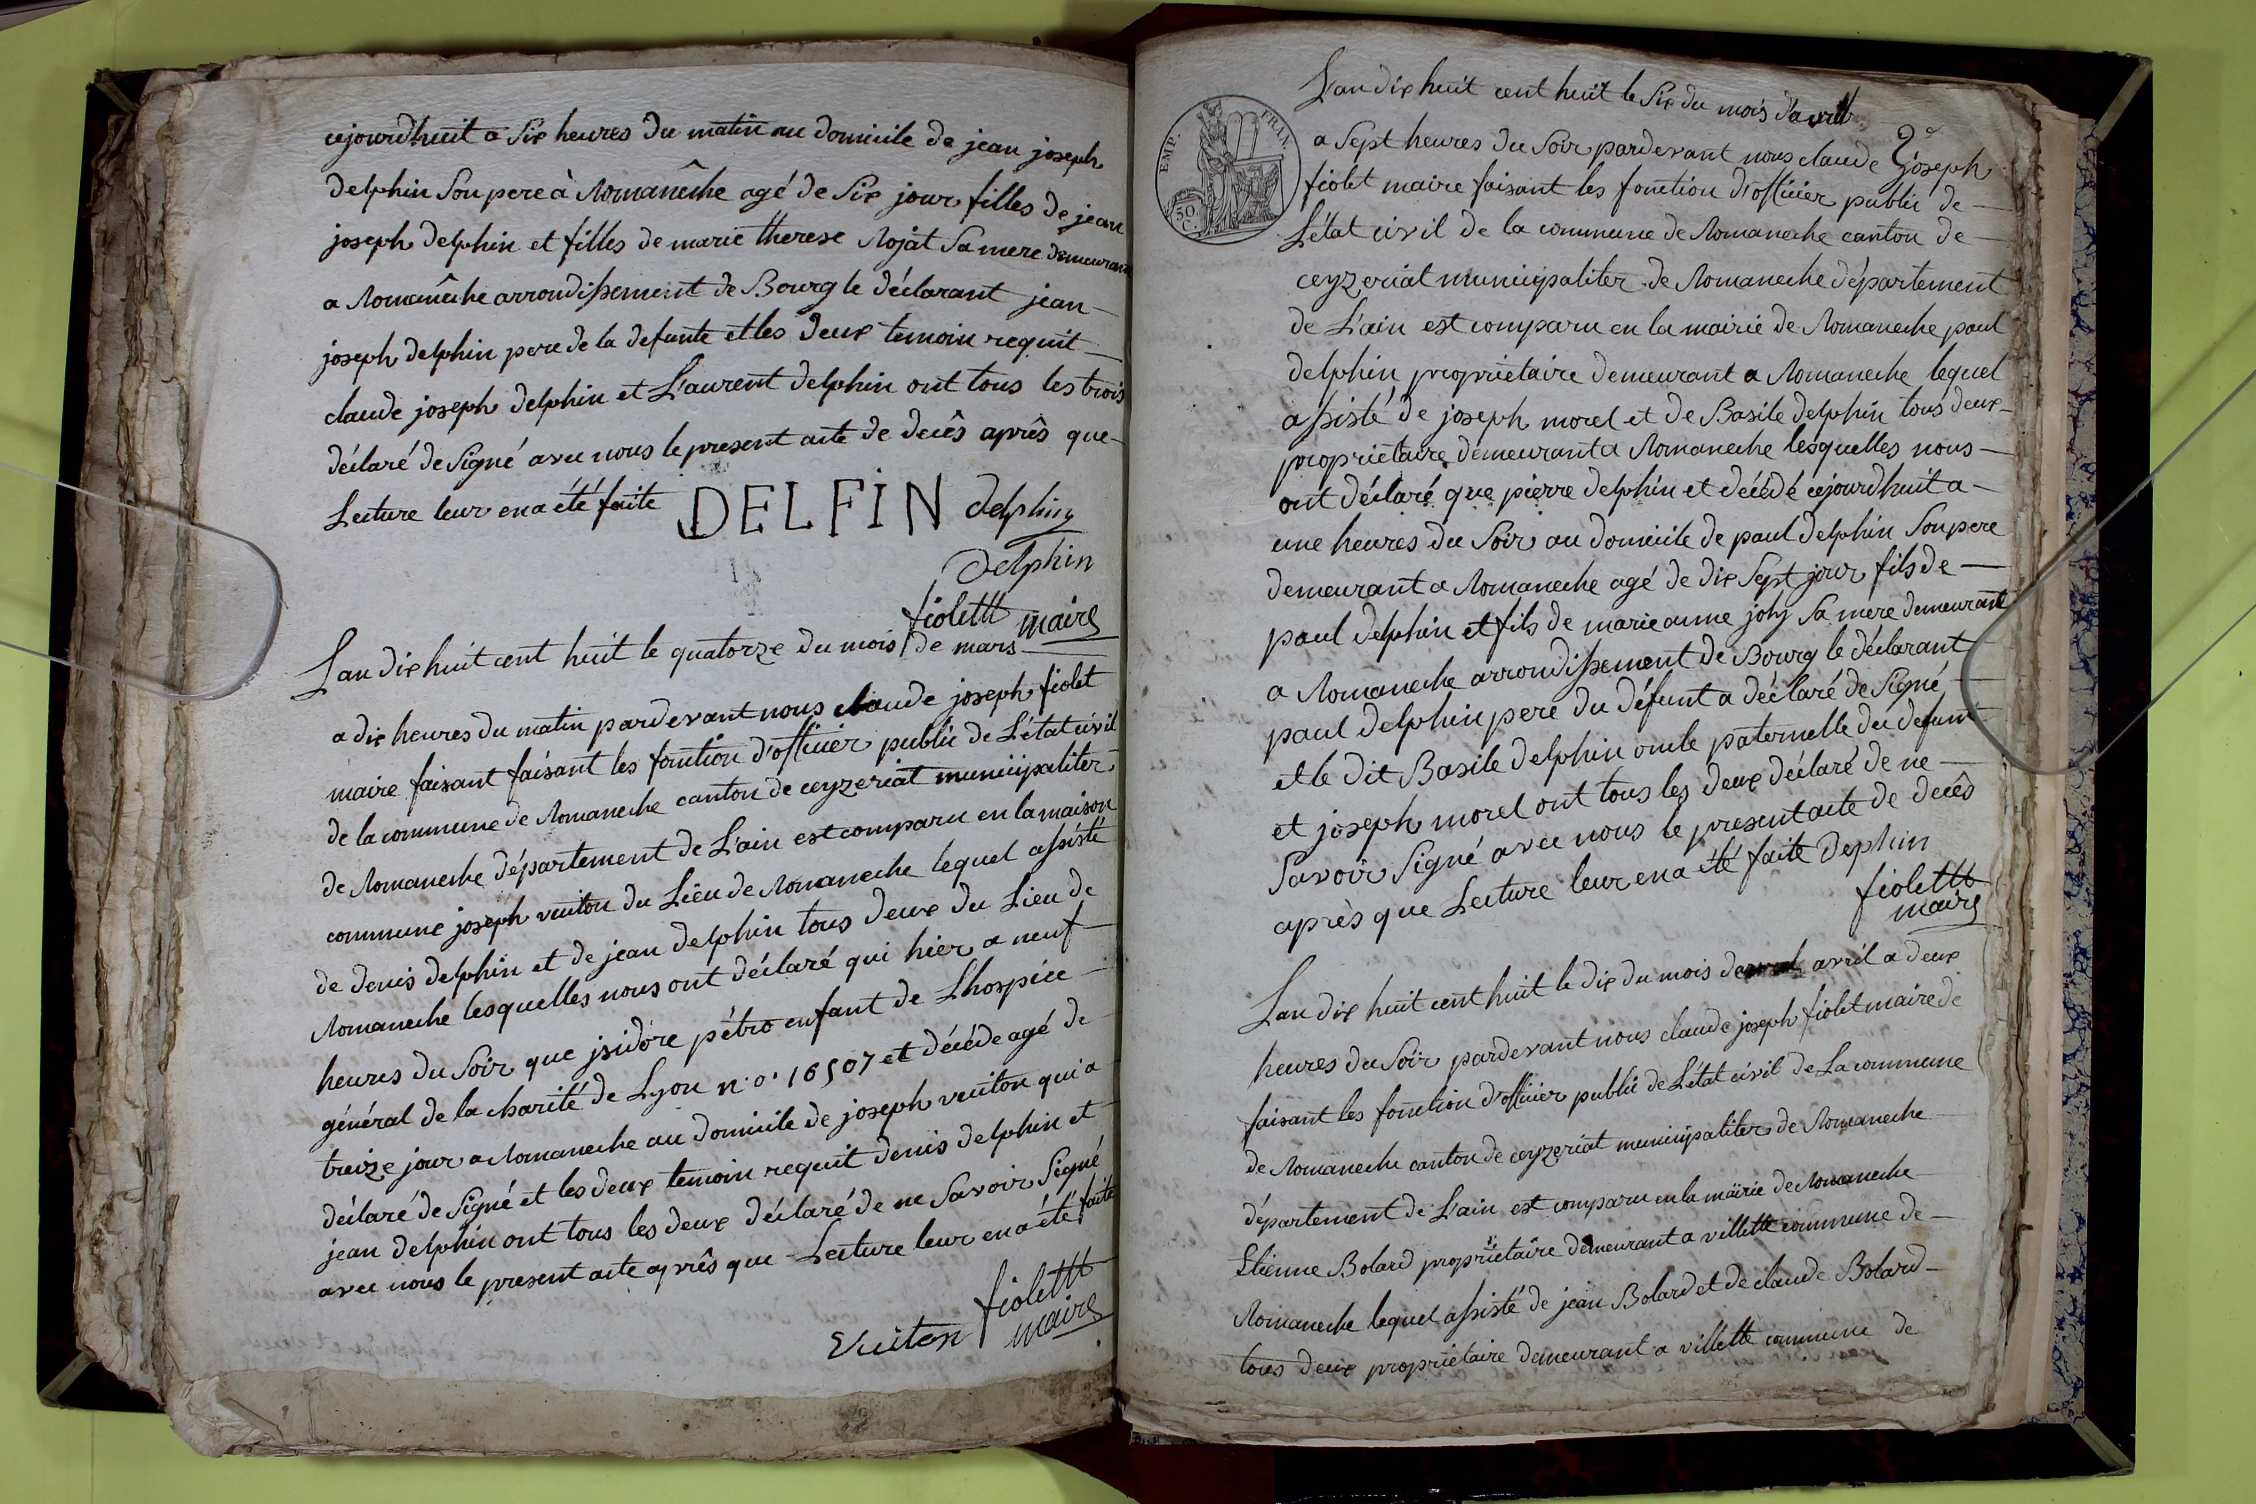 cejourdhuit a Six heures du matin au domicile de jean joseph
delphin Son pere à Romanêche agé de Six jour filles de jean
joseph delphin et filles de marie therese Rojat Sa mere demeurant
a Romanêche arrondissement de Bourg le déclarant jean
joseph delphin pere de la defunte et les deux temoin requit
claude joseph delphin et Laurent delphin ont tous les trois
déclaré de Signé avec nous le present acte de decês aprês que
Lecture leur en a été faite DELFIN delphin
delphin
fiolettt maire
Lan dix huit cent huit le quatorze du mois de mars
a dix heures du matin pardevant nous claude joseph fiolet
maire faisant faisant les fonction d'officier public de L'état civil
de la commune de Romaneche canton de ceyzeriat municipaliter
de Romaneche département de L'ain est comparu en la maison
commune joseph vuiton du Lieu de Romaneche lequel assisté
de denis delphin et de jean delphin tous deux du Lieu de
Romaneche lesquelles nous ont déclaré qui hier a neuf
heures du Soir que jsidore pétro enfant de Lhospice
général de la charité de Lyon n.o. 16507 et décéde agé de
treize jour a Romaneche au domicile de joseph vuiton qui a
déclaré de Signé et les deux temoin requit denis delphin et
jean delphin ont tous les deux déclaré de ne Savoir Signé
avec nous le present acte aprês que Lecture leur en a été faite
Vuiton fioletttt
maire
EMP. FRAN.
50 C.
L'an dix huit cent huit le Six du mois d'avril
a Sept heures du Soir pardevant nous claude joseph
fiolet maire faisant les fonction d'officier public de
L'état civil de la commune de Romaneche canton de
ceyzeriat municipaliter de Romaneche département
de L'ain est comparu en la mairie de Romaneche paul
delphin propriétaire demeurant a Romaneche lequel
assisté de joseph morel et de Basile delphin tous deux
propriétaire demeurant a Romaneche lesquelles nous
ont déclaré que pierre delphin et décédé cejourdhuit a
une heures du Soir au domicile de paul delphin Son pere
demeurant a Romaneche agé de dix Sept jour fils de
paul delphin et fils de marie anne joly Sa mere demeurant
a Romaneche arrondissement de Bourg le déclarant
paul delphin pere du défunt a déclaré de Signé
et le dit Basile delphin oncle paternelle du defunt
et joseph morel ont tous les deux déclaré de ne
Savoir Signé avec nous le present acte de decês
après que Lecture leur en a été faite dephin
fioletttt
maire
Lan dix huit cent huit le dix du mois avril a deux
heures du Soir pardevant nous claude joseph fiolet maire de
faisant les fonction d'officier public de L'état civil de La commune
de Romaneche canton de ceyzeriat municipaliter de Romaneche
département de L'ain est comparu en la mairie de Romaneche
Etienne Bolard propriétaire demeurant a villette commune de
Romaneche lequel assisté de jean Bolard et de claude Bolard
tous deux propriétaire demeurant a villette commune de